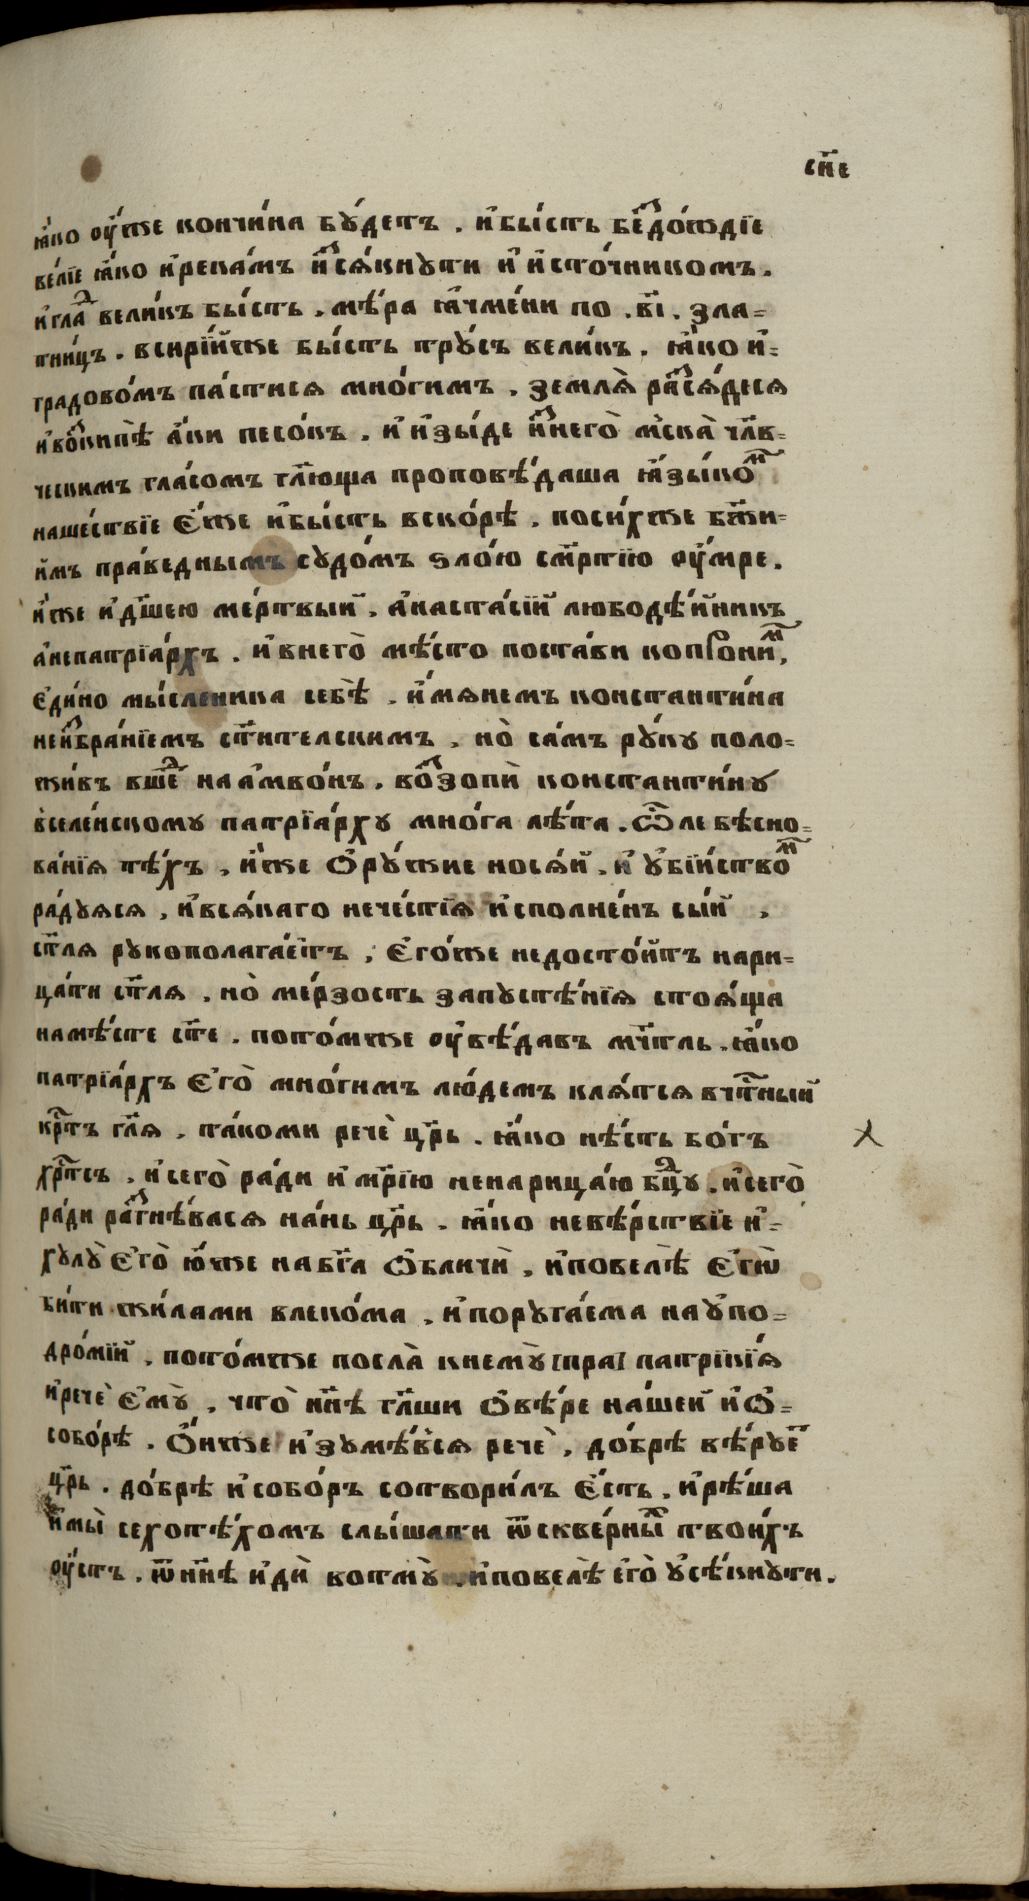 сн҃е
ꙗ҆́ко ᲂу҆́же кончи́на бꙋ́детъ . и҆бы́сть беⷥдо́ждїе
ве́лїе ꙗ҆́ко и҆река́мъ и҆ⷥсѧ́кнꙋти и҆ и҆сто́чникомъ .
и҆гла́ⷣ вели́къ бы́сть . мѣ́ра ꙗ҆чме́ни по . в҃і . зла=
тни́цъ . всирі́йже бы́сть трꙋ́съ вели́къ . ꙗ҆́ко и҆=
градово́мъ па́стисѧ мно́гимъ . землѧ̀ раⷥсѧ́десѧ
и҆воⷥкипѣ̀ а҆́ки песо́къ . и҆ и҆зы́де и҆ⷥнего̀ мска̀ чл҃в=
ческимъ гла́сомъ гл҃юща проповѣ́даша ꙗ҆зы́коⷨ
наше́ствїе є҆́же и҆бы́сть вско́рѣ . поси́хже бж҃и=
имъ пра́веднымъ сꙋдо́мъ ѕло́ю см҃ртїю ᲂу҆́мре .
и҆́же и҆дш҃ею ме́ртвый . а҆наста́сїй любодѣ́йникъ
а҆непатрїа́рхъ . и҆внего̀ мѣ́сто поста́ви копрони́ⷨ,
є҆ди́но мы́сленика себѣ̀ . и҆́мѧнемъ константи́на
неи҆ⷥбра́нїемъ ст҃и́телскимъ . но̀ са́мъ рꙋ́кꙋ поло=
жи́въ вше́ⷣ на а҆мво́нъ . воⷥзопѝ константи́нꙋ
в̾селе́нскомꙋ патрїа́рхꙋ мно́га лѣ́та . ѽле бѣсно=
ва́нїѧ тѣ́хъ . и҆́же ѻ҆рꙋ́жие носѧ́й . и҆ ᲂу҆бі́йствоⷨ
ра́дꙋѧсѧ , и҆всѧ́каго нече́стїѧ и҆сполне́нъ сы́й ,
ст҃лѧ рꙋкополага́етъ , є҆го́же недосто́йтъ нари=
ца́ти ст҃лѧ . но̀ ме́рзость запꙋстѣ́нїѧ стоѧ́ща
намѣ́сте ст҃е . пото́мже ᲂу҆вѣ́давъ мч҃тль . ꙗ҆́ко
патрїа́рхъ є҆го̀ мно́гимъ лю́демъ клѧ́тсѧ вчт҃ный
крⷭ҇тъ гл҃ѧ . та́коми речѐ цр҃ь . ꙗ҆́ко нѣ́сть бо́гъ
хрⷭ҇тсъ . и҆сего̀ ра́ди и҆ мр҃їю ненарица́ю бц҃ꙋ . и҆сего̀
ра́ди раⷥгнѣ́васѧ на́нь цр҃ь . ꙗ҆́ко невѣ́рствїе и҆=
хꙋлꙋ̀ є҆го̀ ю҆́же на бг҃а ѻ҆бличѝ , и҆повелѣ̀ є҆го̀
би́ти жи́лами влеко́ма , и҆порꙋга́ема на ᲂу҆по=
дро́мїй . пото́мже посла̀ кнемꙋ̀ [пра] патрі́кїѧ
и҆речѐ є҆мꙋ̀ , что̀ нн҃ѣ гл҃ши ѻ҆вѣ́ре на́шей и҆ѻ҆=
собо́рѣ . ѻ҆́нже и҆зꙋмѣ́всѧ речѐ , до́брѣ вѣ́рꙋеⷲ
цр҃ь . до́брѣ и҆собо́ръ сотвори́лъ є҆́сть . и҆рѣ́ша
и҆мы̀ сехотѣ́хомъ слы́шати ѿскве́рныⷯ твои́хъ
ᲂу҆́стъ . ѿнн҃ѣ и҆дѝ вотмꙋ̀ . и҆повелѣ̀ є҆го̀ ᲂу҆сѣ́кнꙋти .